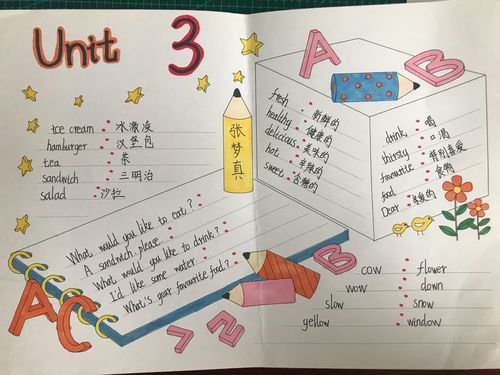 Unit 3
ice cream : 冰激凌
hamburger : 汉堡包
tea : 茶
sandwich : 三明治
salad : 沙拉
张梦真
What would you like to eat?
A sandwich, please.
What would you like to drink?
I'd like some water.
What's your favourite food?
A
B
fresh : 新鲜的
healthy : 健康的
delicious : 美味的
hot : 辛辣的
sweet : 含糖的
drink : 喝
thirsty : 口渴
favourite : 特别喜爱
food : 食物
Dear : 亲爱的
A C
1 2
B
cow : flower
wow : down
slow : snow
yellow : window